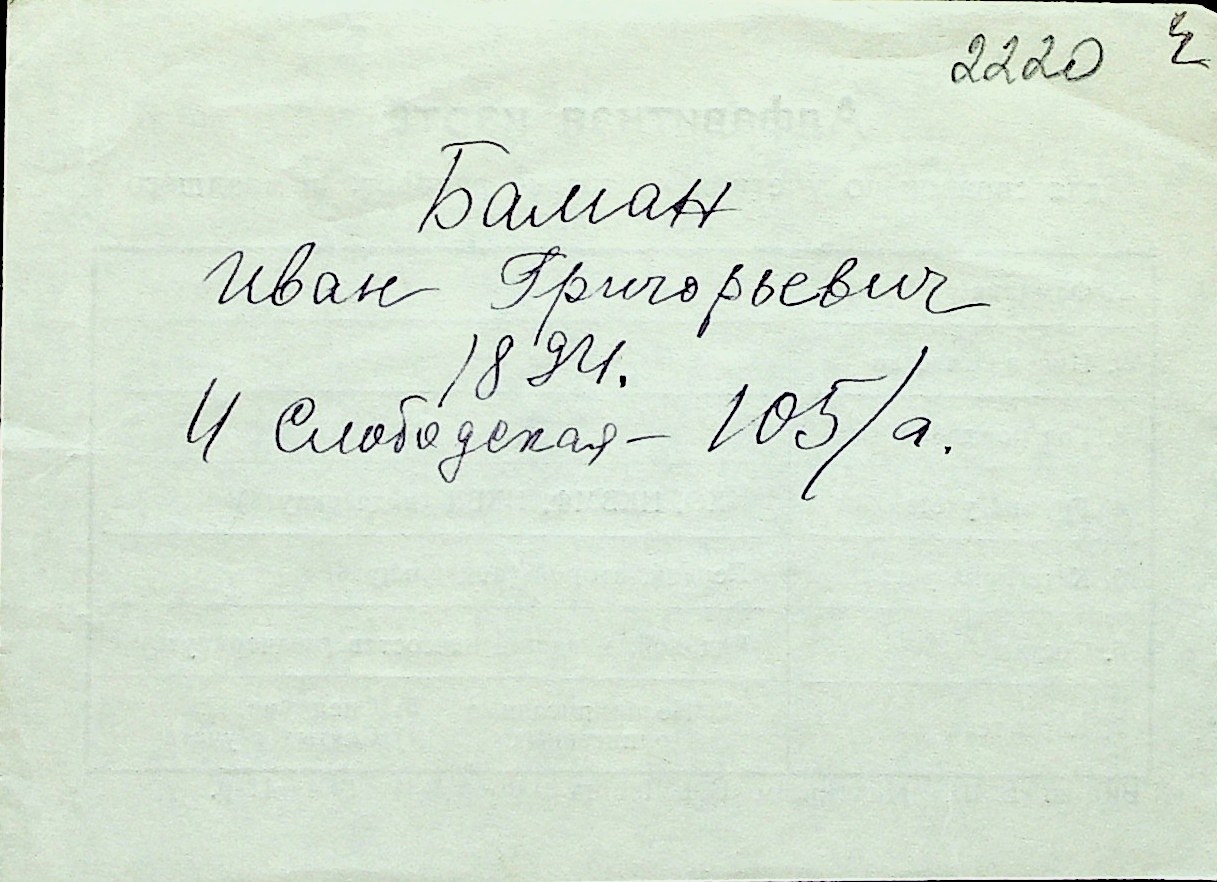 2220
Баман
Иван Григорьевич
1894.
4 Слободская – 105/а.